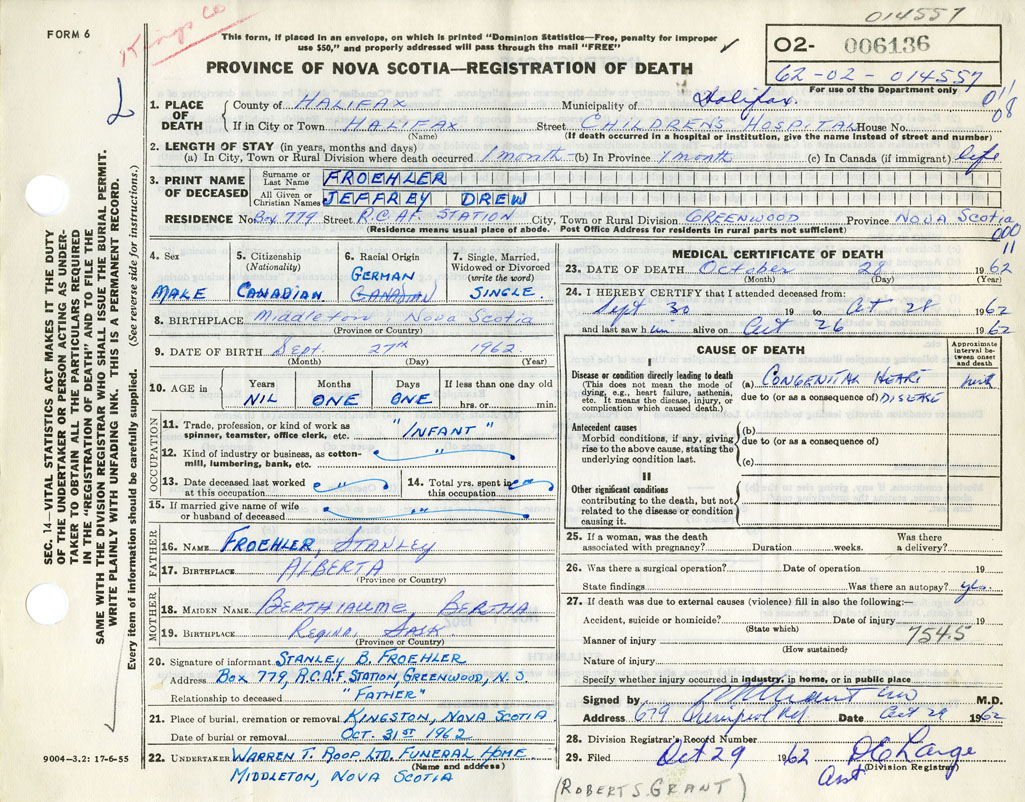 014557
FORM 6
Kings Co
This form, if placed in an envelope, on which is printed "Dominion Statistics—Free, penalty for improper
use $50," and properly addressed will pass through the mail "FREE"
✓
02- 006136
62-02-014557
For use of the Department only
PROVINCE OF NOVA SCOTIA—REGISTRATION OF DEATH
011
08
1. PLACE OF DEATH { County of HALIFAX Municipality of Halifax.
If in City or Town HALIFAX Street CHILDREN'S HOSPITAL House No.
(Name) (If death occurred in a hospital or institution, give the name instead of street and number)
2. LENGTH OF STAY (in years, months and days)
(a) In City, Town or Rural Division where death occurred 1 month (b) In Province 1 month (c) In Canada (if immigrant) life
3. PRINT NAME OF DECEASED { Surname or Last Name FROEHLER
All Given or Christian Names JEFFREY DREW
RESIDENCE No. Box 779 Street R.C.A.F. STATION City, Town or Rural Division GREENWOOD Province NOVA SCOTIA
(Residence means usual place of abode. Post Office Address for residents in rural parts not sufficient)
000
11
4. Sex MALE
5. Citizenship (Nationality) CANADIAN
6. Racial Origin GERMAN CANADIAN
7. Single, Married, Widowed or Divorced (write the word) SINGLE.
8. BIRTHPLACE Middleton, Nova Scotia
(Province or Country)
9. DATE OF BIRTH Sept. 27th 1962.
(Month) (Day) (Year)
10. AGE in { Years Months Days If less than one day old
NIL ONE ONE hrs. or min.
OCCUPATION
11. Trade, profession, or kind of work as spinner, teamster, office clerk, etc. "INFANT"
12. Kind of industry or business, as cotton-mill, lumbering, bank, etc. "
13. Date deceased last worked at this occupation "
14. Total yrs. spent in this occupation "
15. If married give name of wife or husband of deceased "
FATHER
16. NAME FROEHLER, STANLEY
17. BIRTHPLACE ALBERTA
(Province or Country)
MOTHER
18. MAIDEN NAME BERTHIAUME, BERTHA
19. BIRTHPLACE Regina, Sask
(Province or Country)
20. Signature of informant STANLEY B. FROEHLER
Address Box 779, R.C.A.F. STATION, GREENWOOD, N.S
Relationship to deceased "FATHER"
21. Place of burial, cremation or removal KINGSTON, NOVA SCOTIA
Date of burial or removal OCT. 31ST 1962
22. UNDERTAKER WARREN T. ROOP LTD. FUNERAL HOME
(Name and address)
MIDDLETON, NOVA SCOTIA
MEDICAL CERTIFICATE OF DEATH
23. DATE OF DEATH October 28 1962
(Month) (Day) (Year)
24. I HEREBY CERTIFY that I attended deceased from:
Sept 30 19 to Oct 28 1962
and last saw him alive on Oct 26 1962
CAUSE OF DEATH
Approximate interval between onset and death
I
Disease or condition directly leading to death (a) CONGENITAL HEART birth
(This does not mean the mode of dying, e.g., heart failure, asthenia, etc. It means the disease, injury, or complication which caused death.)
due to (or as a consequence of) DISEASE
Antecedent causes
Morbid conditions, if any, giving rise to the above cause, stating the underlying condition last.
(b)
due to (or as a consequence of)
(c)
II
Other significant conditions
contributing to the death, but not related to the disease or condition causing it.
25. If a woman, was the death associated with pregnancy? Duration weeks. Was there a delivery?
26. Was there a surgical operation? Date of operation 19
State findings Was there an autopsy? yes.
27. If death was due to external causes (violence) fill in also the following:—
Accident, suicide or homicide? Date of injury 19
(State which)
Manner of injury 7545
(How sustained)
Nature of injury
Specify whether injury occurred in industry, in home, or in public place
Signed by M.D.
Address 679 Date Oct 29 1962
28. Division Registrar's Record Number
29. Filed Oct 29 1962 D E Large
Asst (Division Registrar)
(ROBERT S. GRANT)
SEC. 14—VITAL STATISTICS ACT MAKES IT THE DUTY
OF THE UNDERTAKER OR PERSON ACTING AS UNDER-
TAKER TO OBTAIN ALL THE PARTICULARS REQUIRED
IN THE "REGISTRATION OF DEATH" AND TO FILE THE
SAME WITH THE DIVISION REGISTRAR WHO SHALL ISSUE THE BURIAL PERMIT.
WRITE PLAINLY WITH UNFADING INK. THIS IS A PERMANENT RECORD.
Every item of information should be carefully supplied. (See reverse side for instructions.)
9004—3.2: 17-6-55